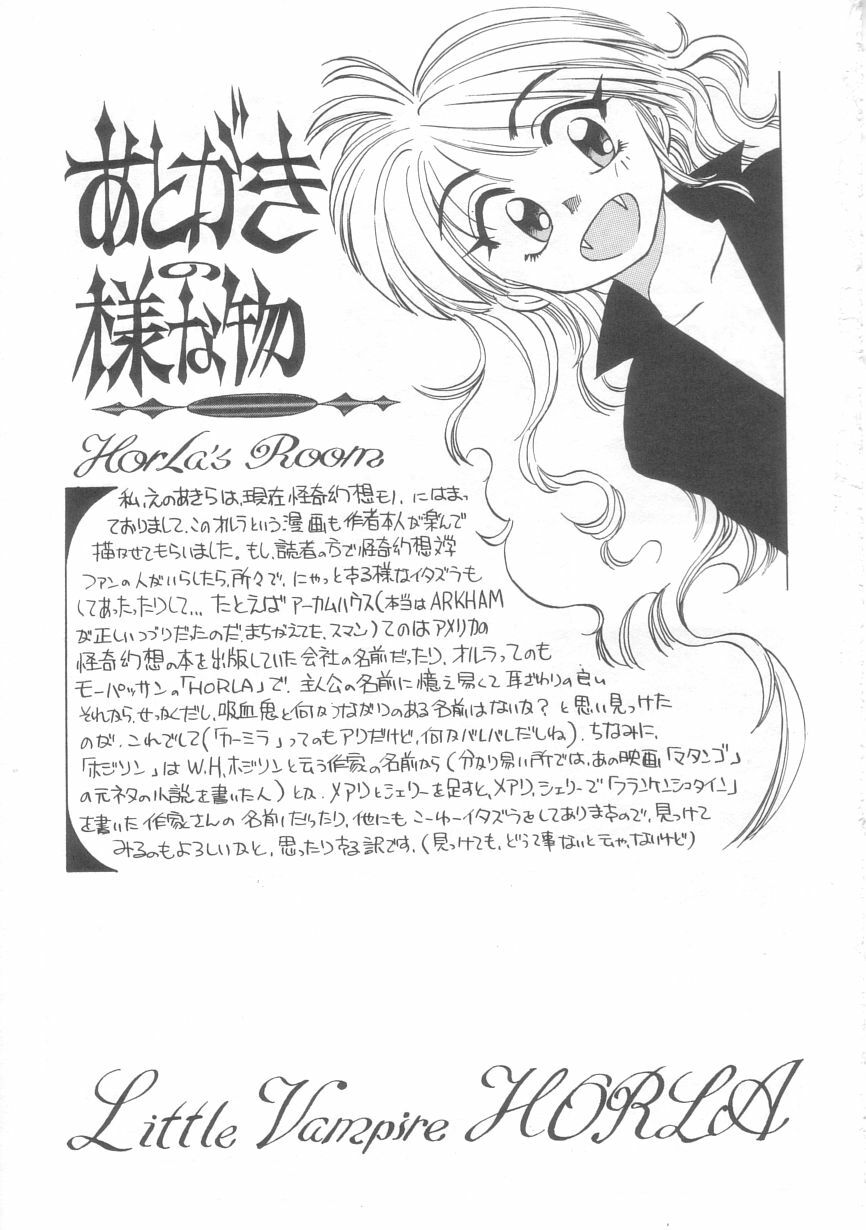 あとがき
の
様な物
HorLa's Room
私、えのあきらは、現在怪奇幻想モノ、にはまっ
ておりまして、このオルラという漫画も作者本人が楽んで
描かせてもらいました。もし、読者の方で怪奇幻想文学
ファンの人がいらしたら、所々で、にやっとする様なイタズラも
してあったりして… たとえばアーカムハウス(本当はARKHAM
が正しいつづりだったのだ、まちがえてた、スマン)てのはアメリカの
怪奇幻想の本を出版していた会社の名前だったり、オルラってのも
モーパッサンの「HORLA」で、主人公の名前に憶え易くて耳ざわりの良い
それから、せっかくだし、吸血鬼と何かつながりのある名前はないか?と思い見つけた
のが、これでして(「カーミラ」ってのもアリだけど、何かバレバレだしね)、ちなみに、
「ホジソン」はW.H.ホジソンと云う作家の名前から(分かり易い所では、あの映画「マタンゴ」
の元ネタの小説を書いた人)とか、メアリとシェリーを足すと、メアリ、シェリーで「フランケンシュタイン」
を書いた作家さんの名前だったり、他にもこーゆーイタズラをしてありますので、見つけて
みるのもよろしいかと、思ったりする訳です。(見つけても、どうて事ないと云や、ないけど)
Little Vampire HORLA